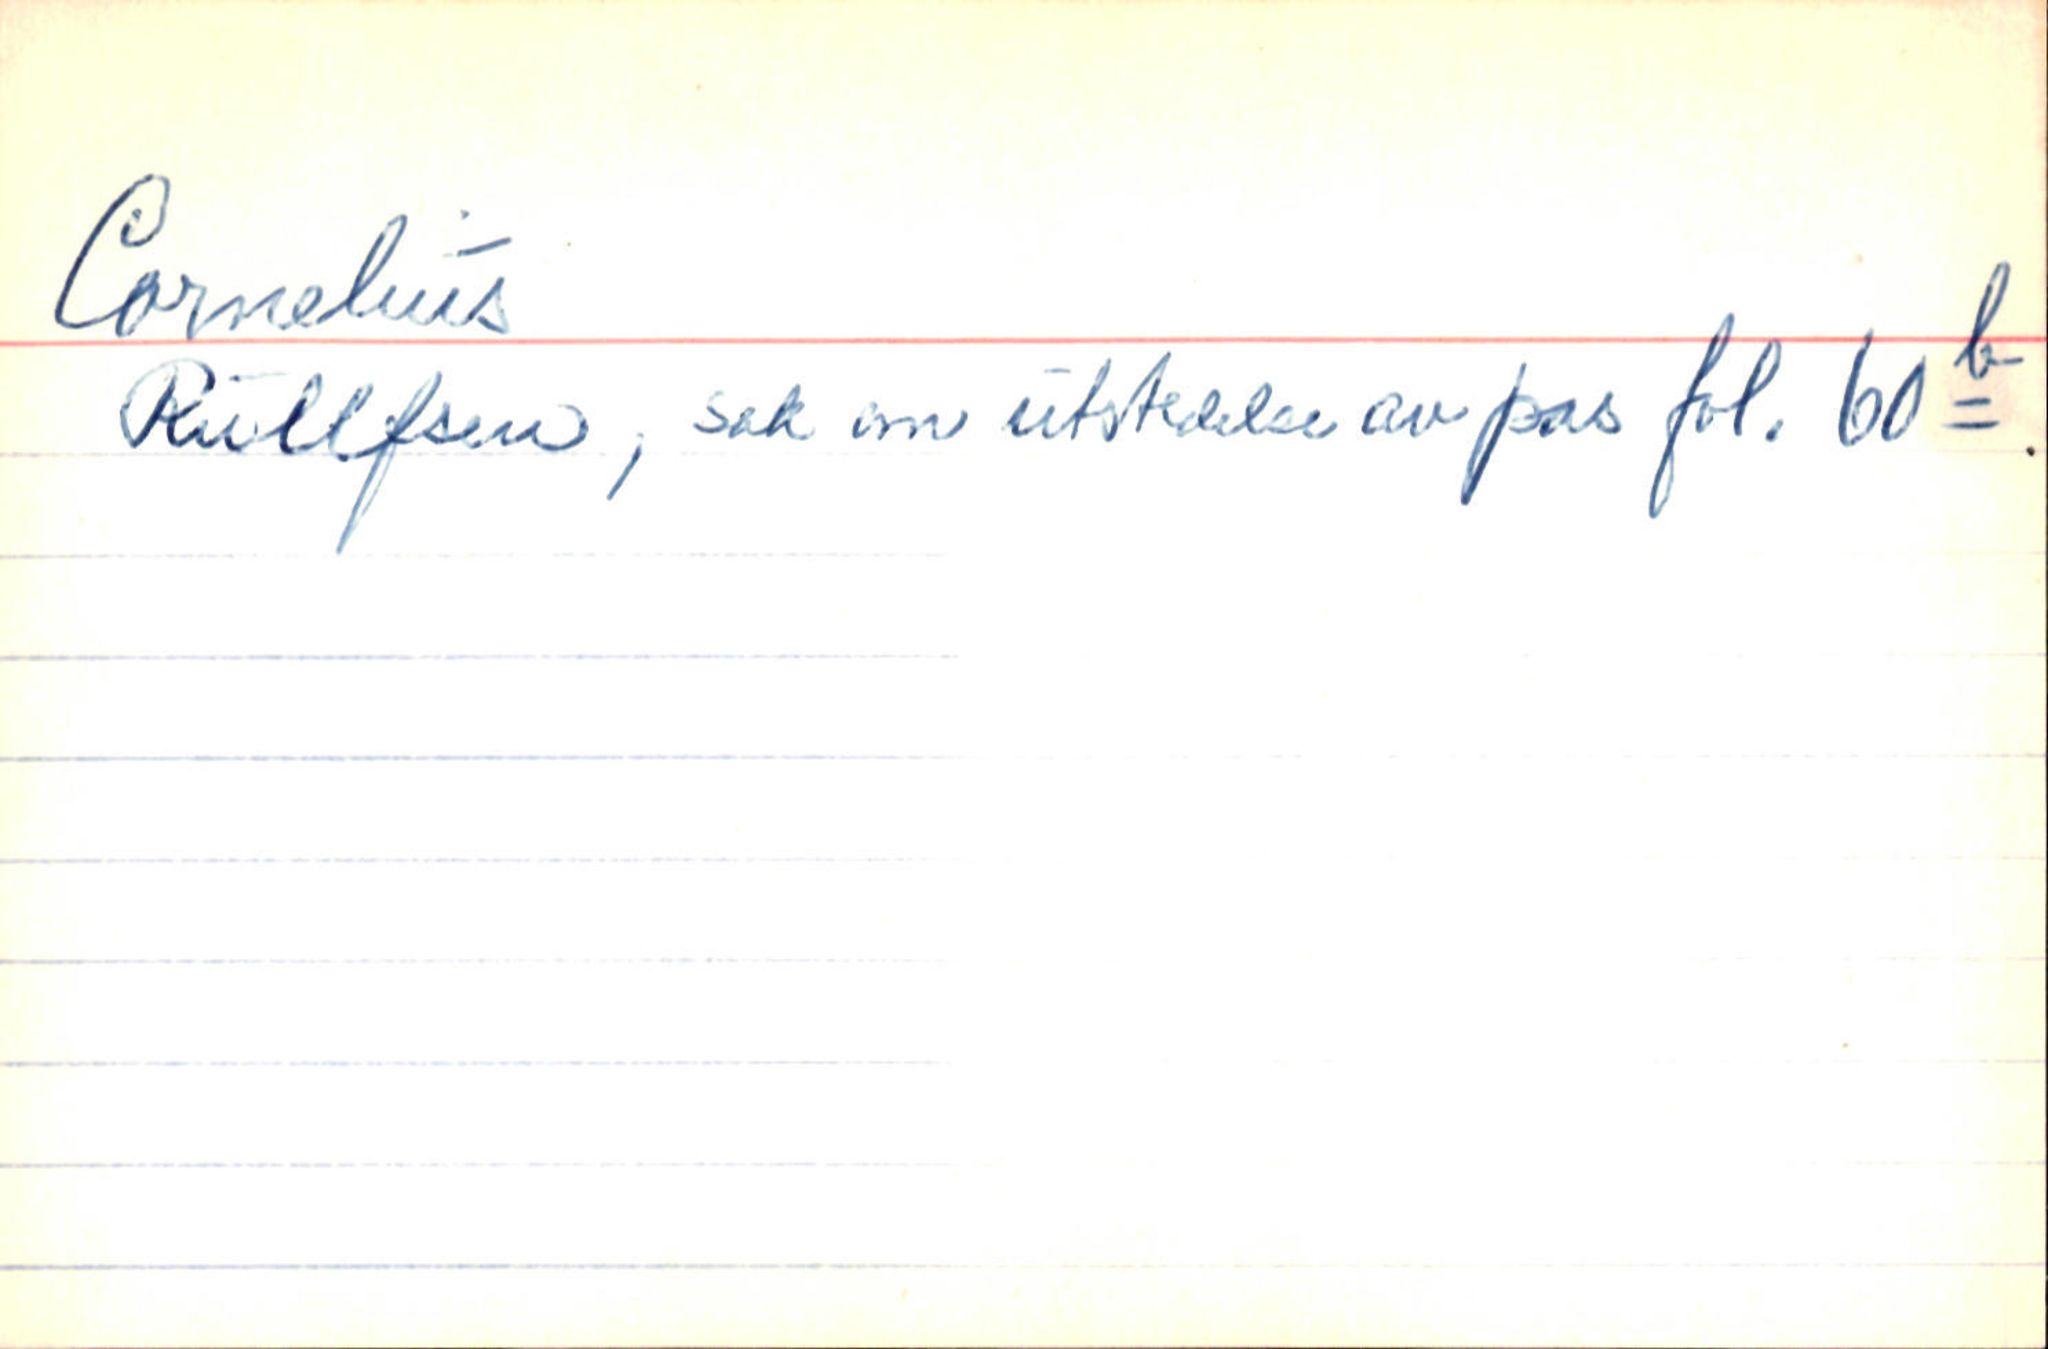 Cornelius
Rulllfsen, sak om utstedelse av pas fol. 60 b.